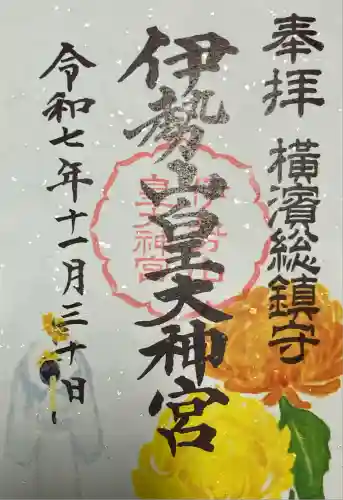 奉拝 横濱総鎮守
伊勢山皇大神宮
令和七年十一月三十日